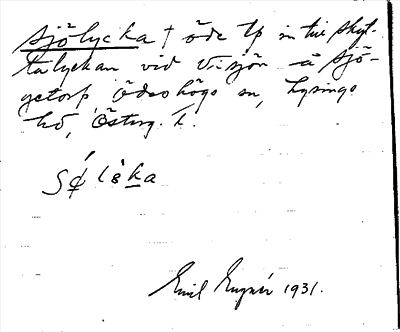 Sjölycka † öde tp intill skyt-
talyckan vid Visjön å Sjö-
getorp Ödeshögs sn, Lysings
hd, Österg. l.
Emil Engnér 1931.